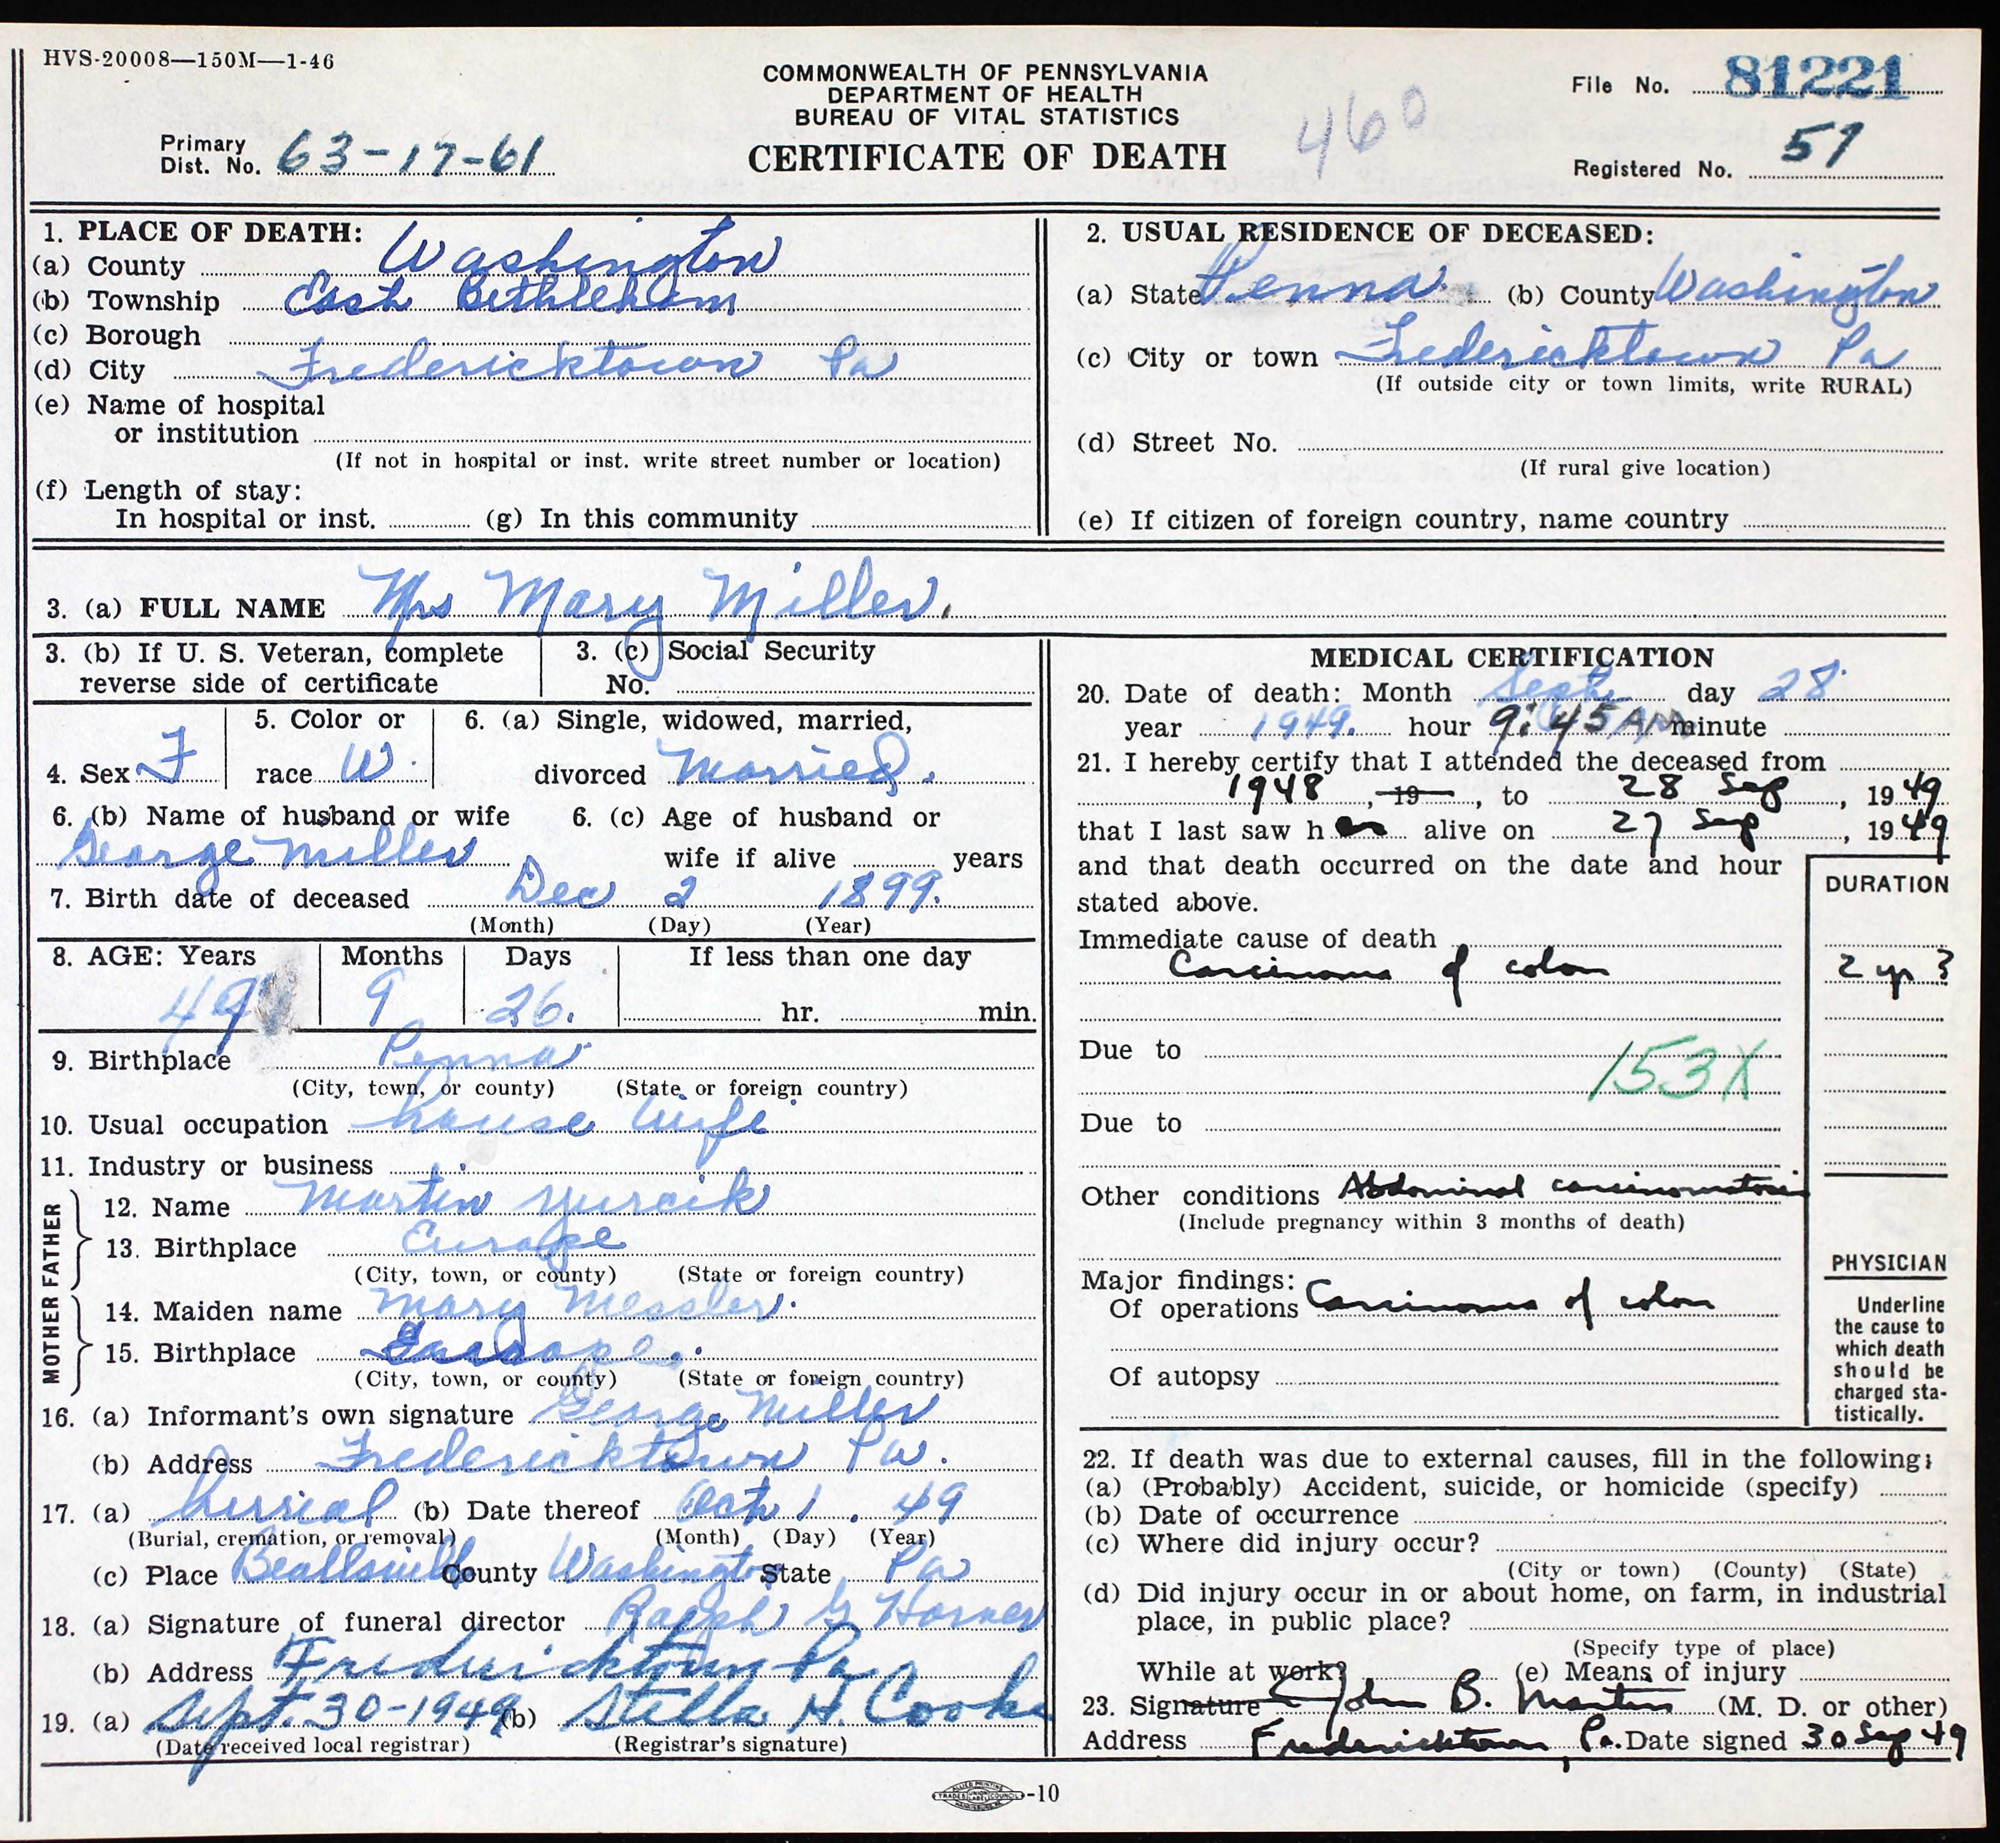 HVS-20008—150M—1-46
COMMONWEALTH OF PENNSYLVANIA
DEPARTMENT OF HEALTH
BUREAU OF VITAL STATISTICS
CERTIFICATE OF DEATH
460
File No. 81221
Primary Dist. No. 63-17-61
Registered No. 57
1. PLACE OF DEATH:
(a) County Washington
(b) Township East Bethleham
(c) Borough
(d) City Fredericktown Pa
(e) Name of hospital
or institution
(If not in hospital or inst. write street number or location)
(f) Length of stay:
In hospital or inst. (g) In this community
2. USUAL RESIDENCE OF DECEASED:
(a) State Penna (b) County Washington
(c) City or town Fredericktown Pa
(If outside city or town limits, write RURAL)
(d) Street No.
(If rural give location)
(e) If citizen of foreign country, name country
3. (a) FULL NAME Mrs Mary Miller.
3. (b) If U. S. Veteran, complete
reverse side of certificate
3. (c) Social Security
No.
4. Sex F
5. Color or
race W.
6. (a) Single, widowed, married,
divorced Married.
6. (b) Name of husband or wife
George Miller
6. (c) Age of husband or
wife if alive years
7. Birth date of deceased Dec 2 1899.
(Month) (Day) (Year)
8. AGE: Years Months Days If less than one day
49 9 26. hr. min.
9. Birthplace Penna
(City, town, or county) (State or foreign country)
10. Usual occupation house wife
11. Industry or business
FATHER
12. Name Martin Yurcik
13. Birthplace Europe
(City, town, or county) (State or foreign country)
MOTHER
14. Maiden name Mary Messler.
15. Birthplace Europe.
(City, town, or county) (State or foreign country)
16. (a) Informant's own signature George Miller
(b) Address Fredericktown Pa.
17. (a) Burrial (b) Date thereof Oct 1. 49
(Burial, cremation, or removal) (Month) (Day) (Year)
(c) Place Beallsville County Washington State Pa
18. (a) Signature of funeral director Ralph G Horner
(b) Address Fredericktown Pa.
19. (a) Sept. 30-1949 (b) Stella H. Cooke
(Date received local registrar) (Registrar's signature)
MEDICAL CERTIFICATION
20. Date of death: Month Sept. day 28
year 1949. hour 9:45 AM minute
21. I hereby certify that I attended the deceased from
1948, 19, to 28 Sep, 1949
that I last saw her alive on 27 Sep, 1949
and that death occurred on the date and hour
stated above.
DURATION
Immediate cause of death
Carcinoma of colon 2 yr ?
Due to
153X
Due to
Other conditions Abdominal carcinomatosis
(Include pregnancy within 3 months of death)
Major findings:
Of operations Carcinoma of colon
Of autopsy
PHYSICIAN
Underline
the cause to
which death
should be
charged sta-
tistically.
22. If death was due to external causes, fill in the following:
(a) (Probably) Accident, suicide, or homicide (specify)
(b) Date of occurrence
(c) Where did injury occur?
(City or town) (County) (State)
(d) Did injury occur in or about home, on farm, in industrial
place, in public place?
(Specify type of place)
While at work? (e) Means of injury
23. Signature John B. Martin (M. D. or other)
Address Fredericktown, Pa. Date signed 30 Sep 49
-10